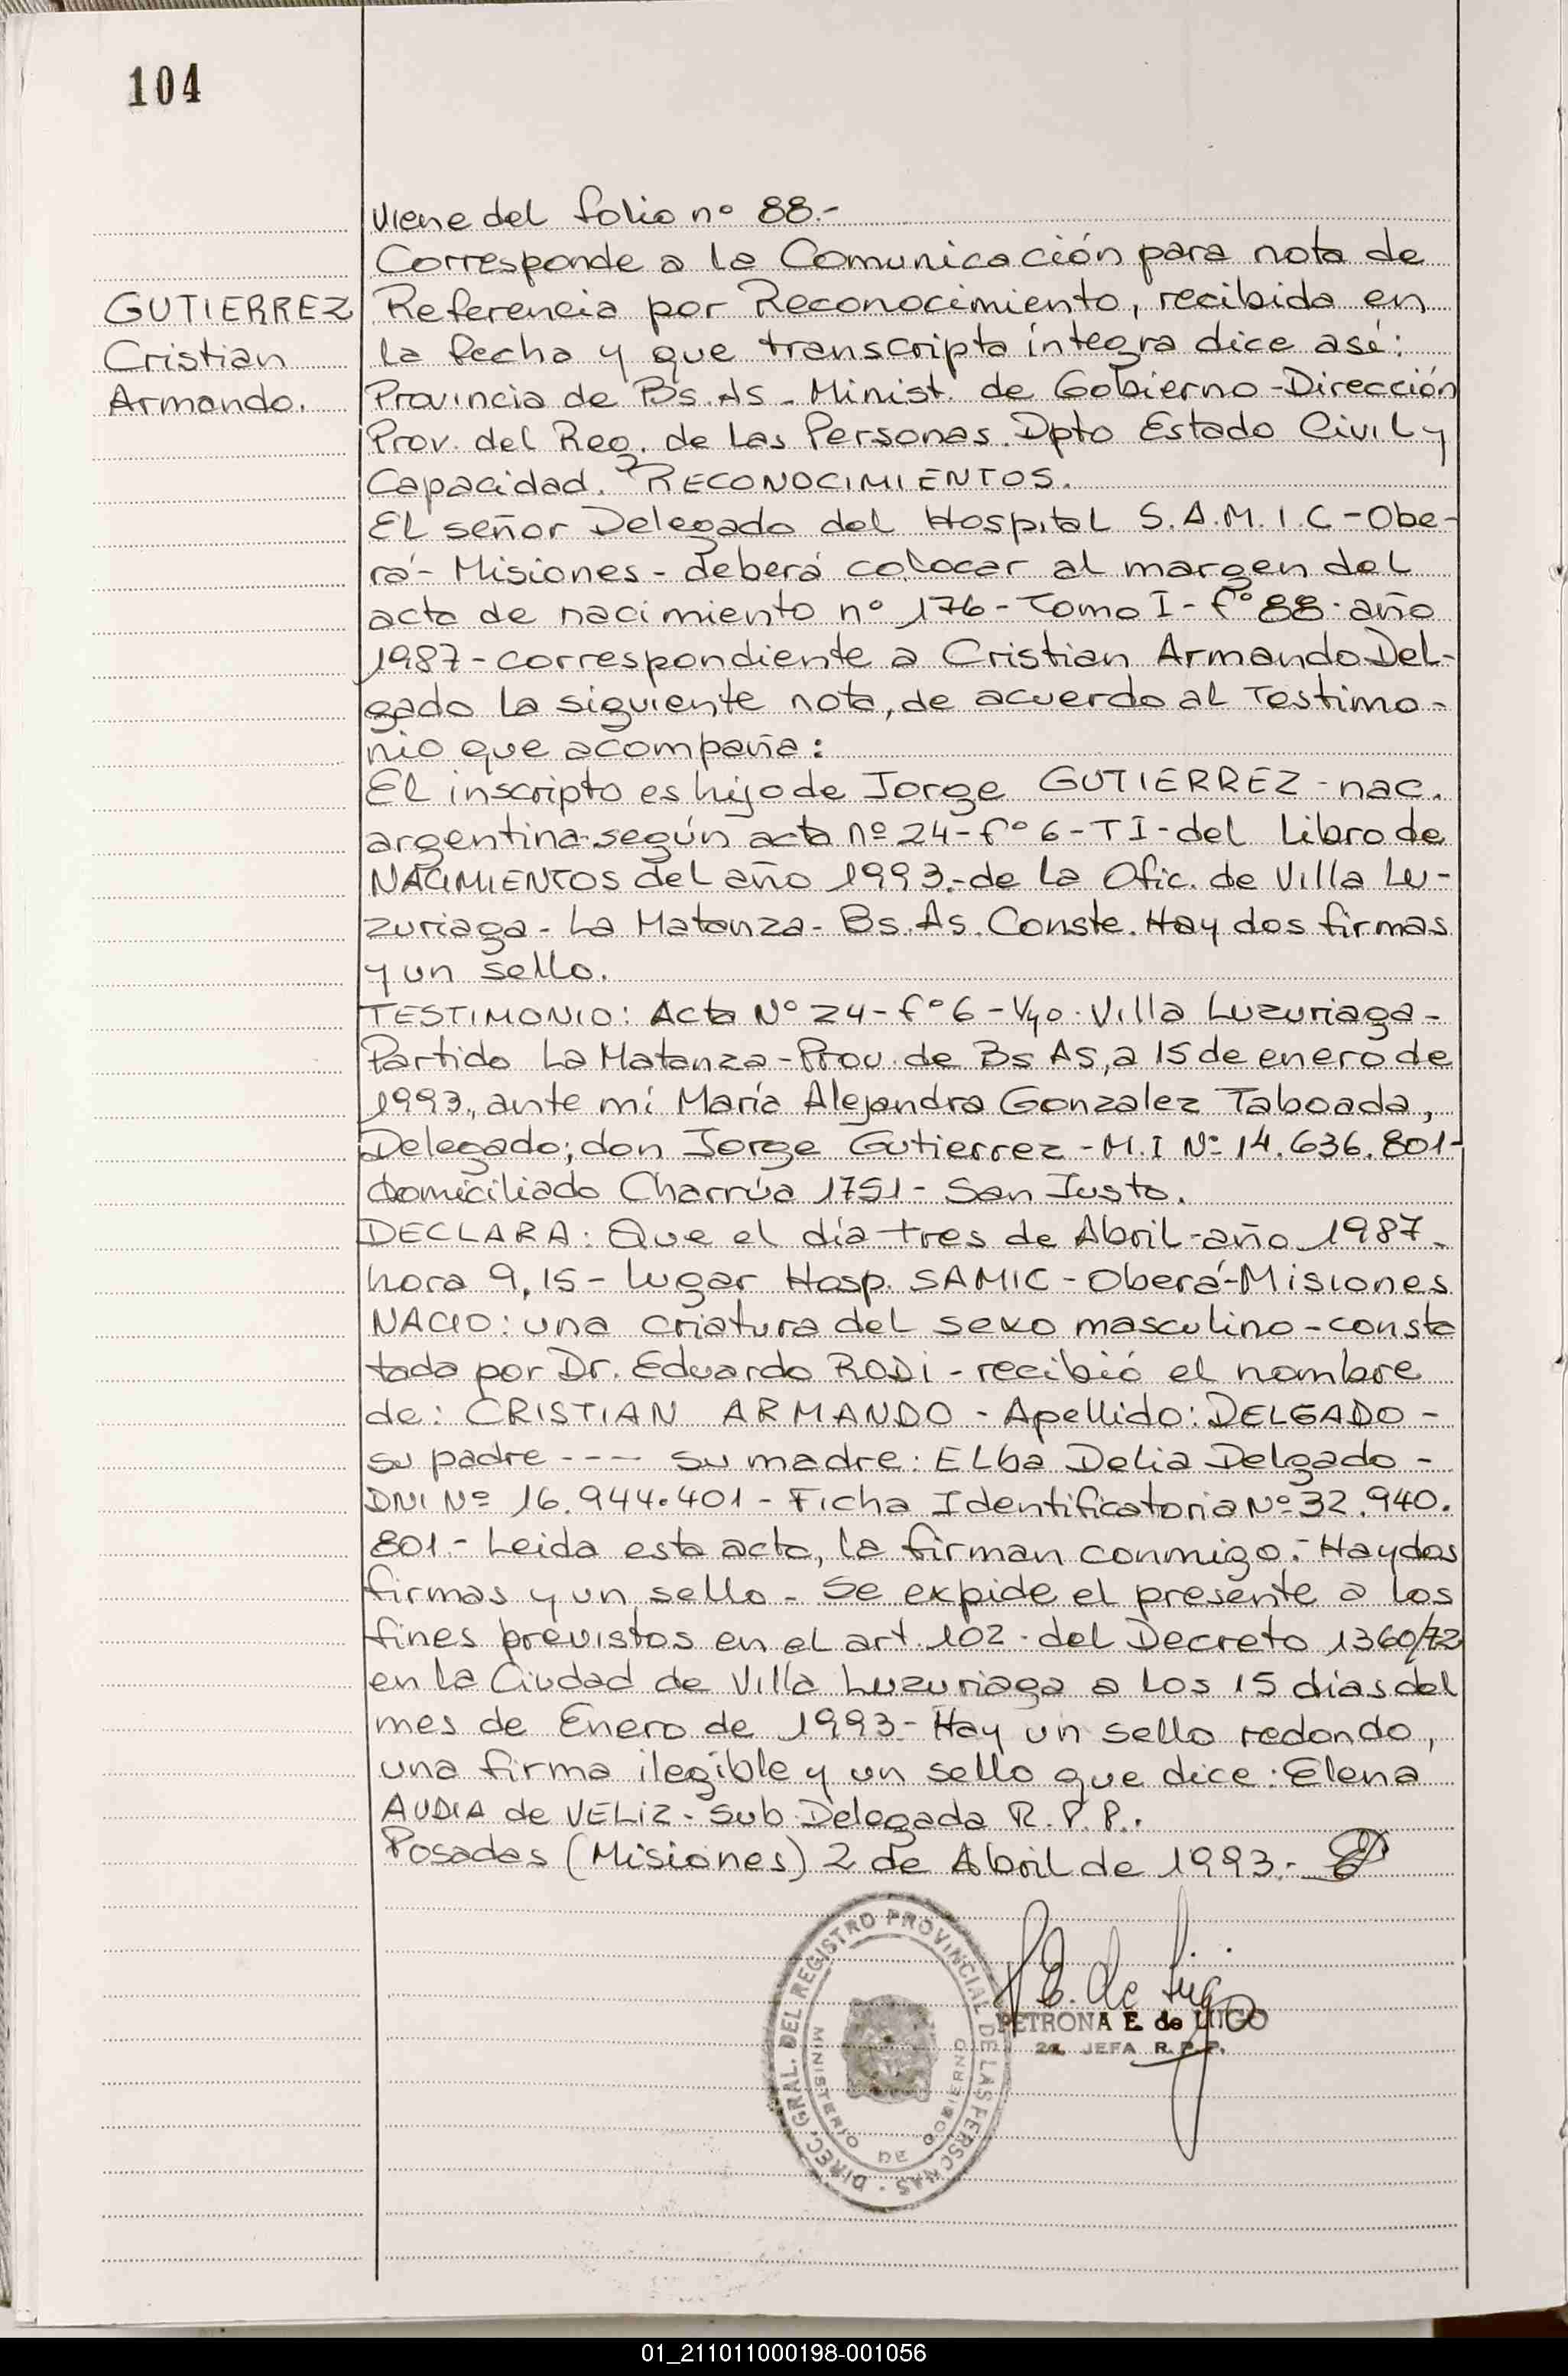 104
Viene del folio nº 88.-
Corresponde a la Comunicación para nota de
GUTIERREZ Referencia por Reconocimiento, recibida en
Cristian la fecha y que transcripta íntegra dice así:
Armando. Provincia de Bs. As - Minist. de Gobierno - Dirección
Prov. del Reg. de las Personas. Dpto Estado Civil y
Capacidad. RECONOCIMIENTOS.
El señor Delegado del Hospital S.A.M.I.C - Obe-
rá - Misiones - deberá colocar al margen del
acta de nacimiento nº 176 - Tomo I - fº 88 - año
1987 - correspondiente a Cristian Armando Del-
gado la siguiente nota, de acuerdo al Testimo-
nio que acompaña:
El inscripto es hijo de Jorge GUTIERREZ - nac.
argentina - según acta nº 24 - fº 6 - T I - del Libro de
NACIMIENTOS del año 1993.- de la Ofic. de Villa Lu-
zuriaga - La Matanza - Bs. As. Conste. Hay dos firmas
y un sello.
TESTIMONIO: Acta Nº 24 - fº 6 - V40 - Villa Luzuriaga -
Partido La Matanza - Prov. de Bs As, a 15 de enero de
1993, ante mí María Alejandra Gonzalez Taboada,
Delegado; don Jorge Gutierrez - M.I Nº 14.636.801 -
domiciliado Charrúa 1751 - San Justo.
DECLARA: Que el día tres de Abril - año 1987 -
hora 9,15 - lugar Hosp. SAMIC - Oberá - Misiones
NACIO: una criatura del sexo masculino - consta
tada por Dr. Eduardo RODI - recibió el nombre
de: CRISTIAN ARMANDO - Apellido: DELGADO -
su padre ---- su madre: Elba Delia Delgado -
DNI Nº 16.944.401 - Ficha Identificatoria Nº 32.940.
801.- Leida esta acta, la firman conmigo.- Hay dos
firmas y un sello - Se expide el presente a los
fines previstos en el art. 102 - del Decreto 1360/72
en la Ciudad de Villa Luzuriaga a los 15 días del
mes de Enero de 1993 - Hay un sello redondo,
una firma ilegible y un sello que dice: Elena
AUDIA de VELIZ - Sub Delegada R.P.P..
Posadas (Misiones) 2 de Abril de 1993.-
P.E. de Lugo
PETRONA E. de LUGO
2a. JEFA R.P.P.
DIREC. GRAL. DEL REGISTRO PROVINCIAL DE LAS PERSONAS
MINISTERIO DE GOBIERNO
01_211011000198-001056